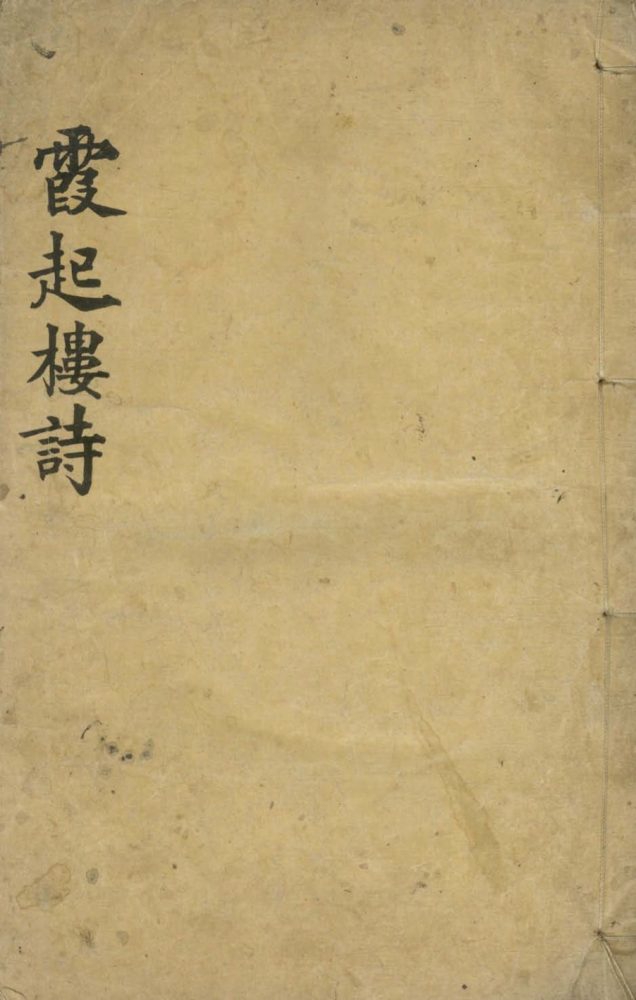 霞起樓詩